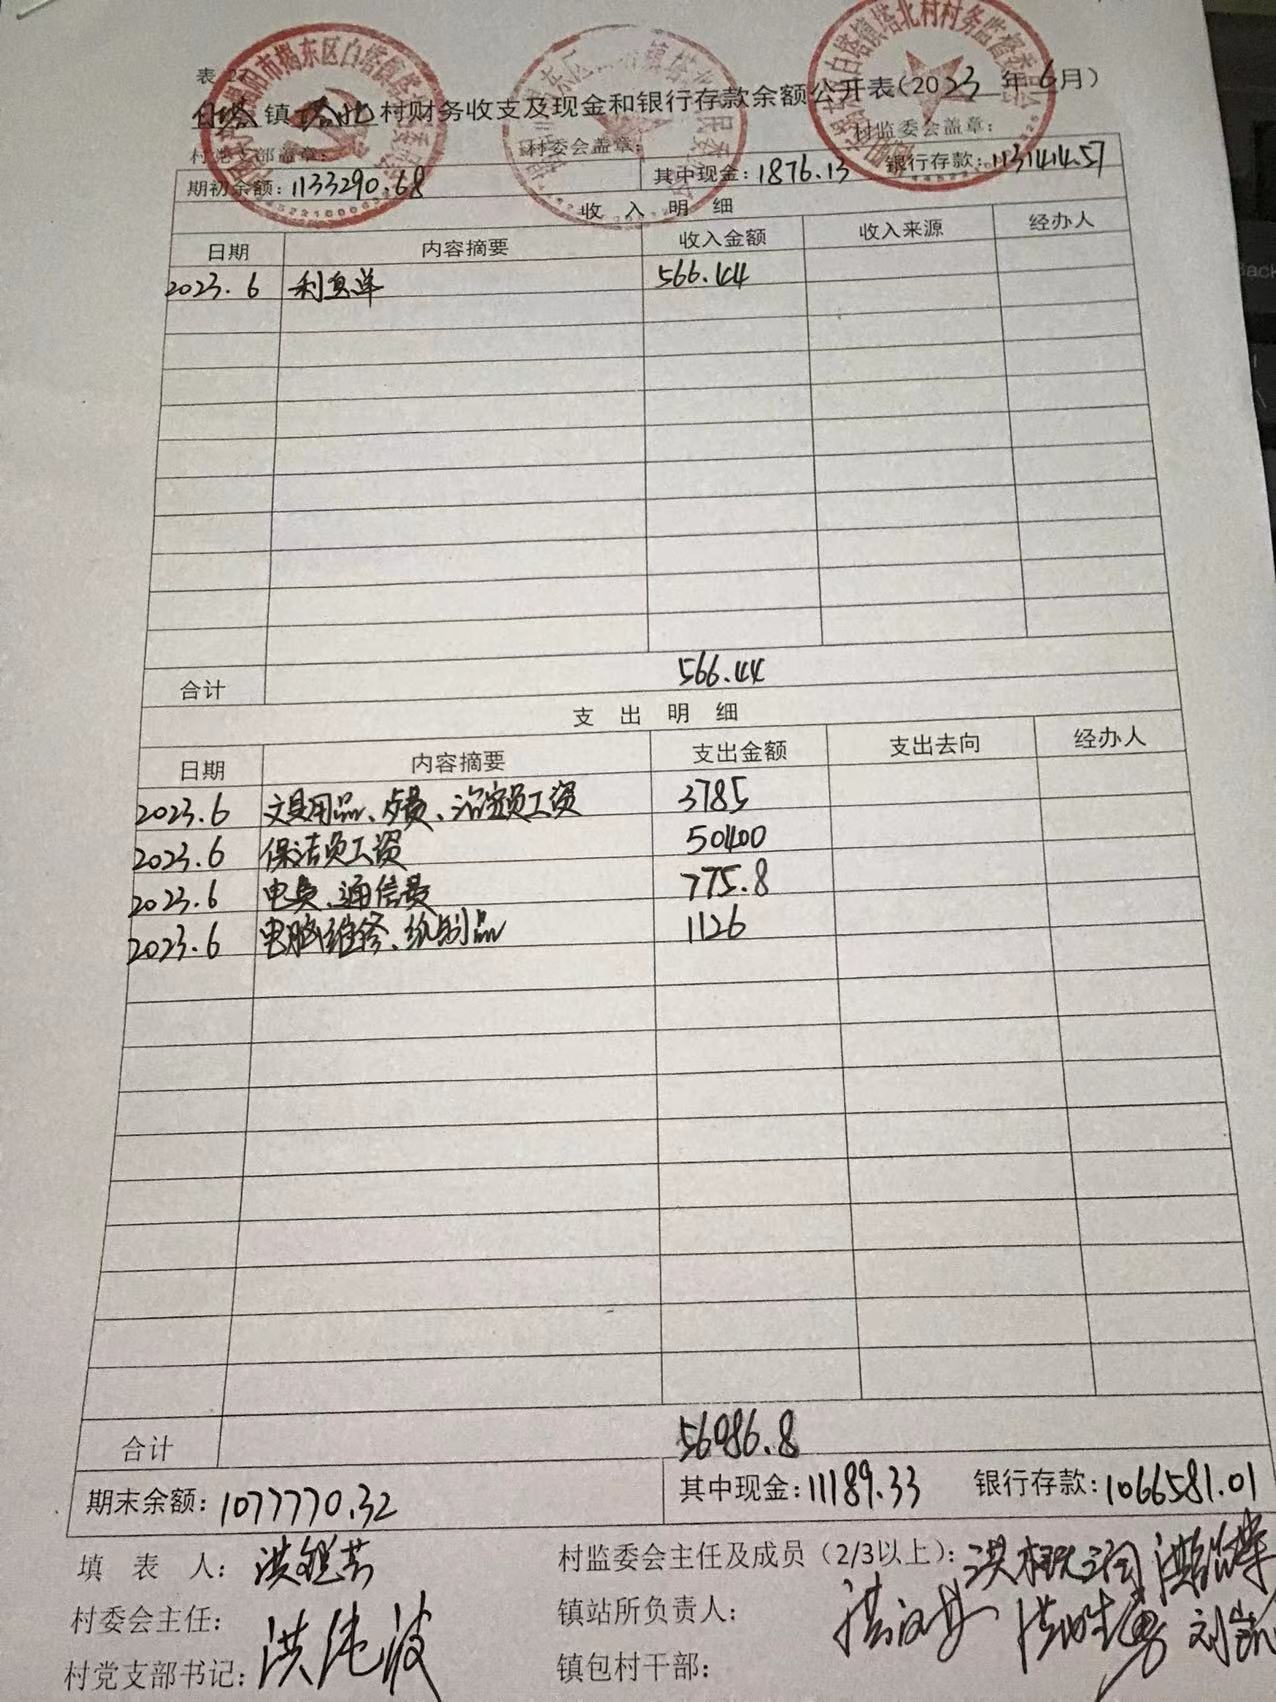 表2
白塔镇塔北村财务收支及现金和银行存款余额公开表(2023年6月)
村党支部盖章: 村委会盖章: 村监委会盖章:
期初余额:1133290.68 其中现金:1876.13 银行存款:1131414.57
收入明细
日期 内容摘要 收入金额 收入来源 经办人
2023.6 利息单 566.44
合计 566.44
支出明细
日期 内容摘要 支出金额 支出去向 经办人
2023.6 文具用品、 、治安员工资 3785
2023.6 保洁员工资 50400
2023.6 电费、通信费 775.8
2023.6 电脑维修、纸制品 1126
合计 56086.8
期末余额:1077770.32 其中现金:11189.33 银行存款:1066581.01
填表人: 洪 村监委会主任及成员(2/3以上): 洪
村委会主任: 镇站所负责人:
洪纯波 洪汉 洪 勇 刘
村党支部书记: 镇包村干部: